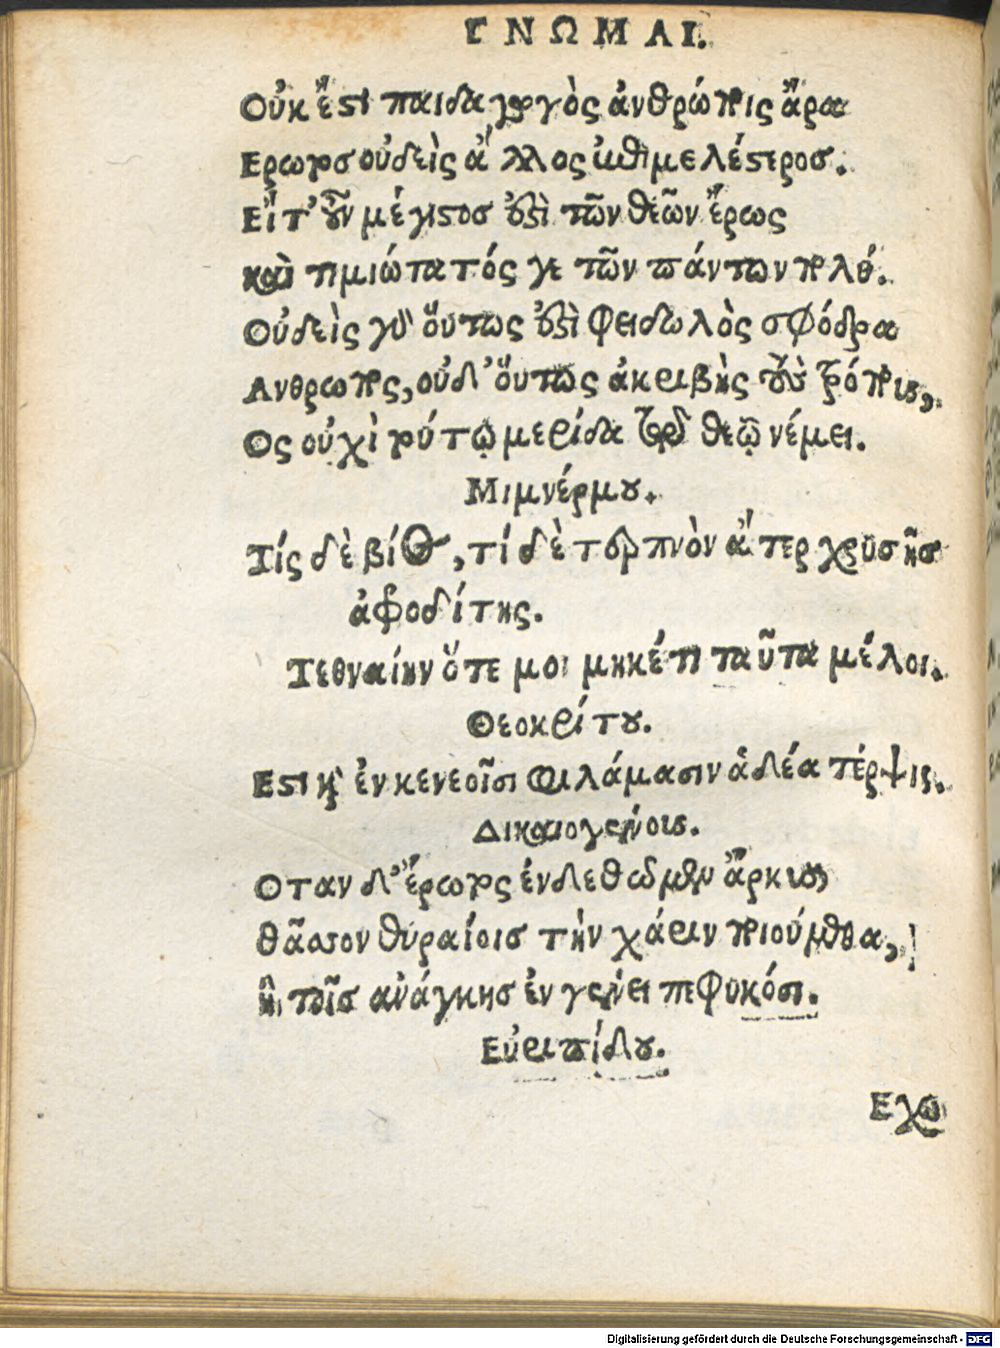 ΓΝΩΜΑΙ.
Οὐκ ἔστι παιδαγωγὸς ἀνθρώποις ἄρα
Ερωτος οὐδεὶς ἄλλος ἐπιμελέστερος.
Εἶτ' οὖν μέγιστος ἐστὶ τῶν θεῶν ἔρως
καὶ τιμιώτατός γε τῶν πάντων πολύ.
Οὐδεὶς γὰρ οὕτως ἐστὶ φειδωλὸς σφόδρα
Ανθρωπος, οὐδ' οὕτως ἀκριβὴς τοὺς τρόπους,
Ος οὐχὶ τούτῳ μερίδα τῷ θεῷ νέμει.
Μιμνέρμου.
Τίς δὲ βίος, τί δὲ τερπνὸν ἄτερ χρυσῆς
ἀφροδίτης.
Τεθναίην ὅτε μοι μηκέτι ταῦτα μέλοι.
Θεοκρίτου.
Εστι καὶ ἐν κενεοῖσι φιλάμασιν ἁδέα τέρψις.
Δικαιογένους.
Οταν δ' ἔρωτος ἐνδεθῶμεν ἄρκυσι
θᾶσσον θυραίοις τὴν χάριν ποιούμεθα,
ἢ τοῖς ἀνάγκης ἐν γένει πεφυκόσι.
Εὐριπίδου.
Εχω
Digitalisierung gefördert durch die Deutsche Forschungsgemeinschaft - DFG